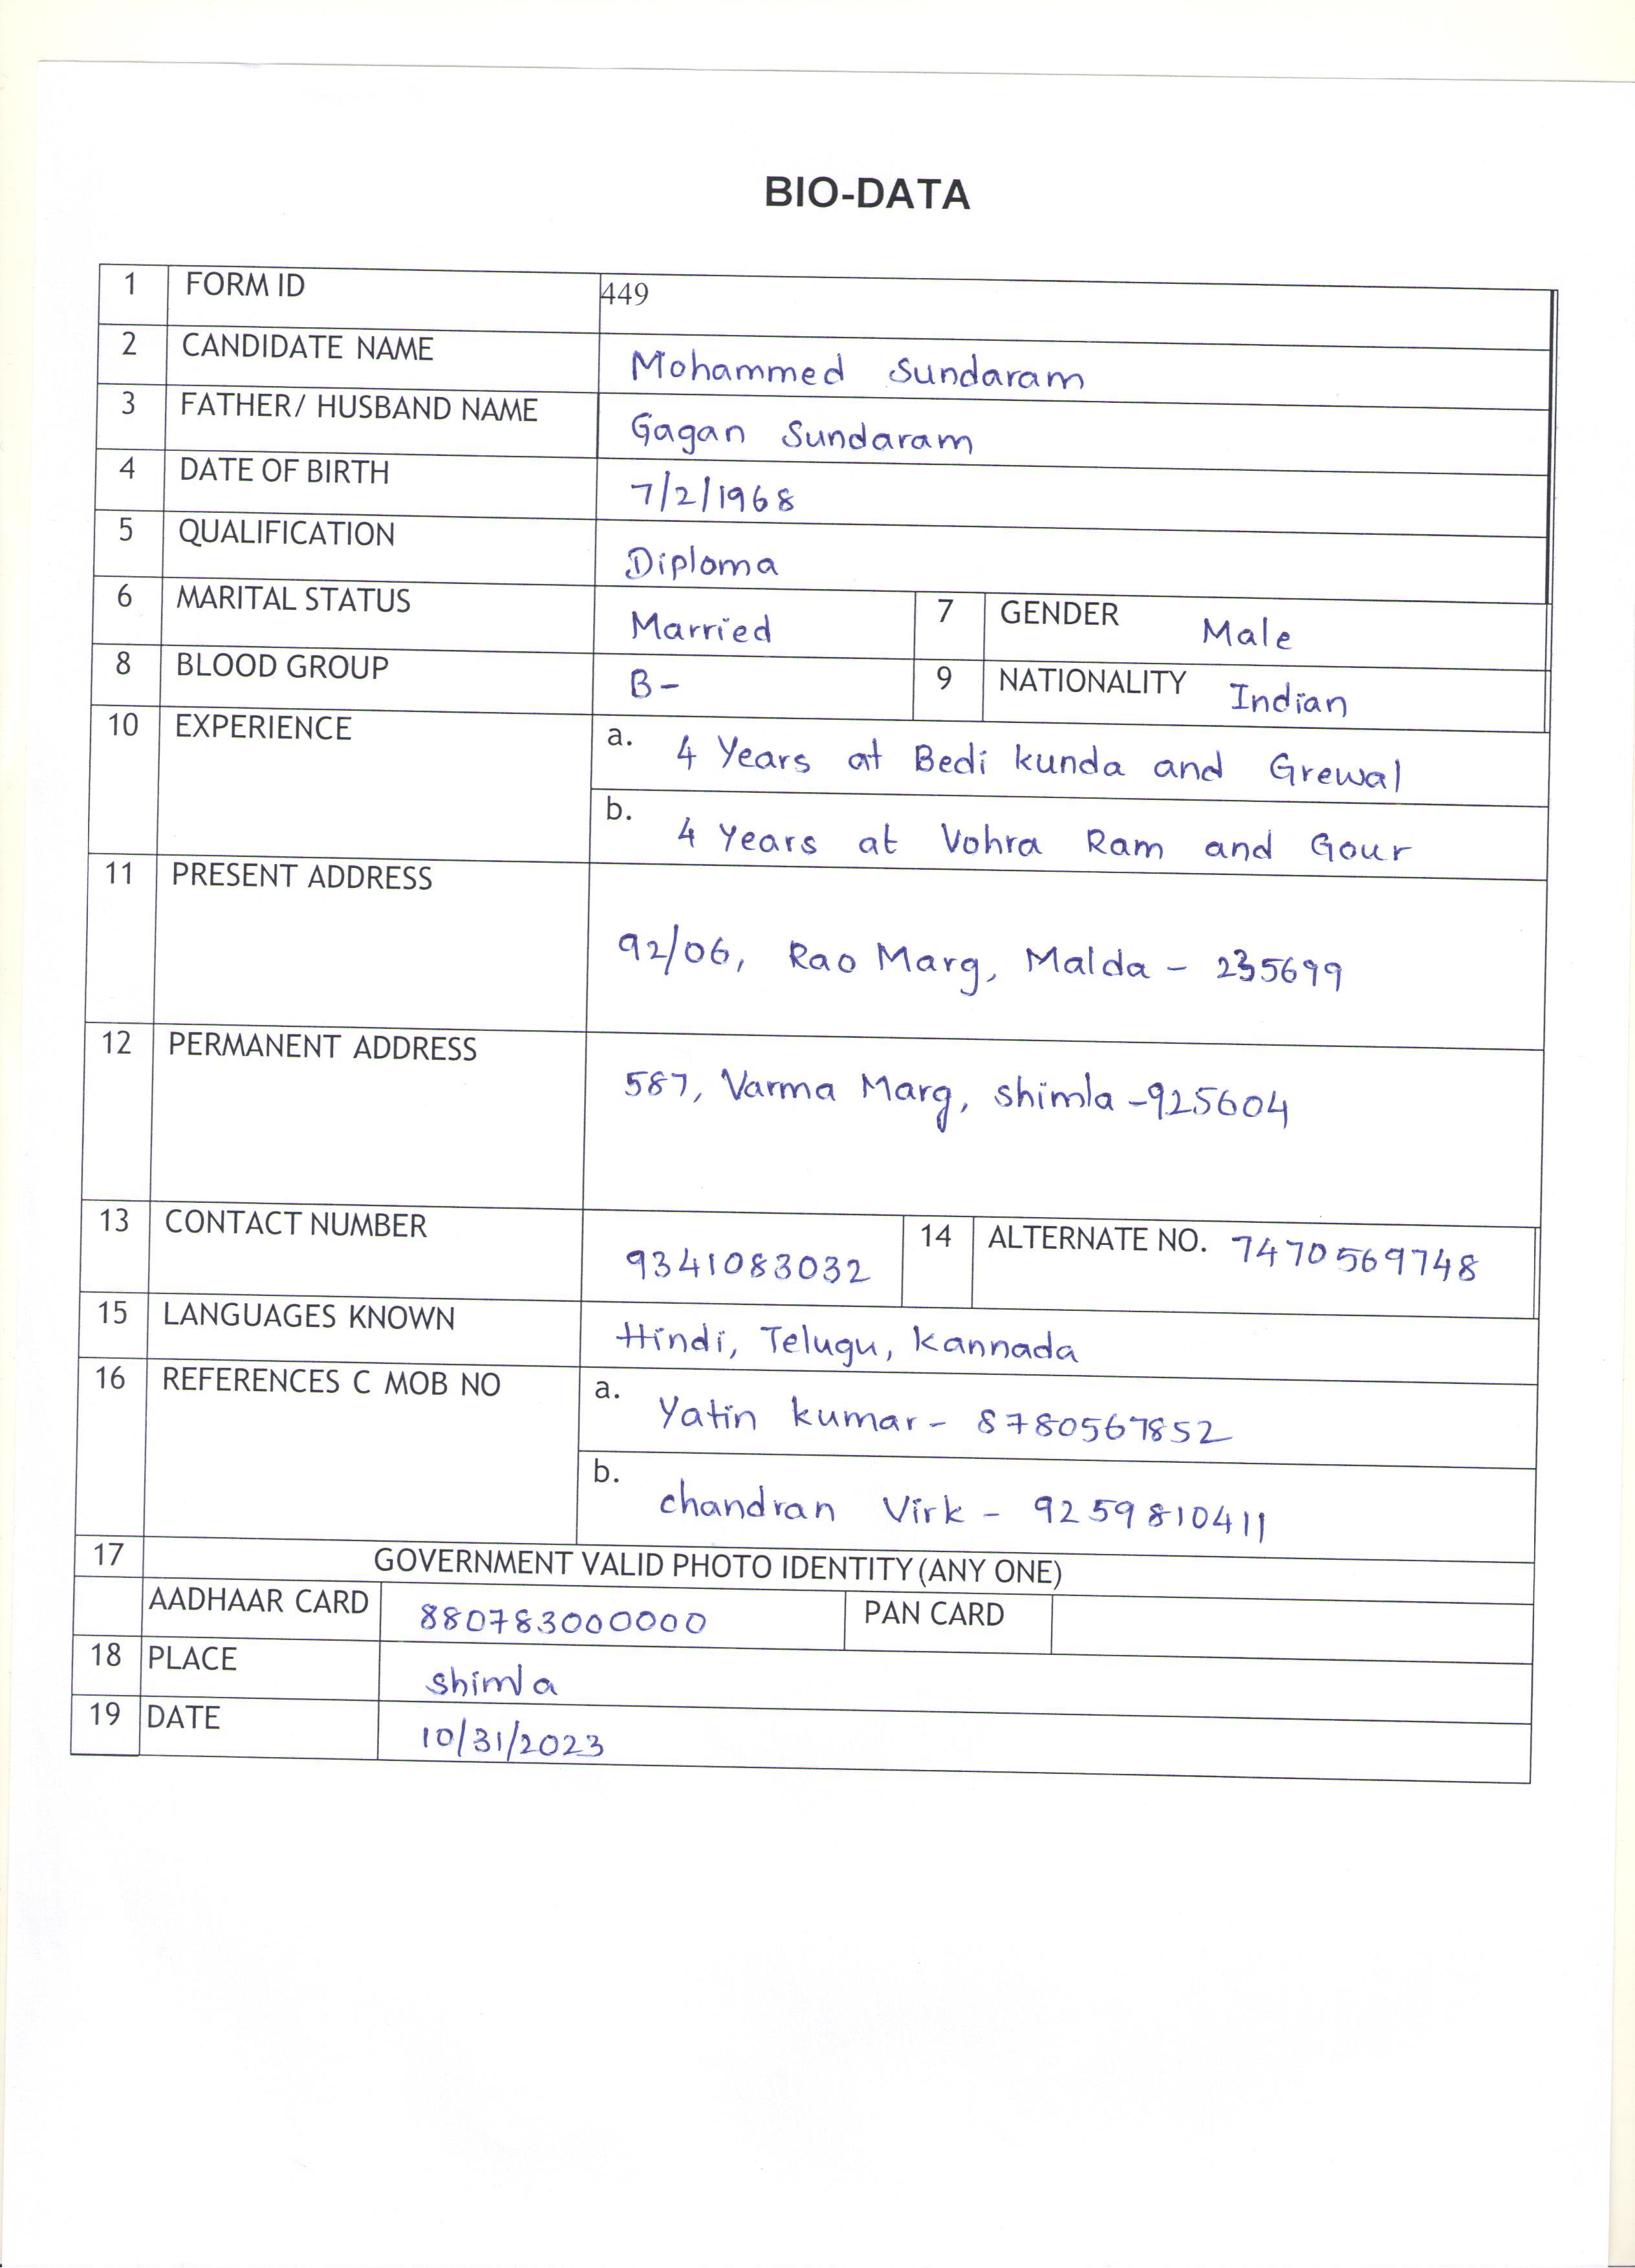 BIO-DATA
1 FORM ID 449
2 CANDIDATE NAME Mohammed Sundaram
3 FATHER/ HUSBAND NAME Gagan Sundaram
4 DATE OF BIRTH 7/2/1968
5 QUALIFICATION Diploma
6 MARITAL STATUS Married 7 GENDER Male
8 BLOOD GROUP B- 9 NATIONALITY Indian
10 EXPERIENCE a. 4 Years at Bedi kunda and Grewal
b. 4 Years at Vohra Ram and Gour
11 PRESENT ADDRESS
92/06, Rao Marg, Malda - 235699
12 PERMANENT ADDRESS
587, Varma Marg, shimla -925604
13 CONTACT NUMBER 9341083032 14 ALTERNATE NO. 7470569748
15 LANGUAGES KNOWN Hindi, Telugu, Kannada
16 REFERENCES C MOB NO a. Yatin kumar - 8780567852
b. chandran Virk - 9259810411
17 GOVERNMENT VALID PHOTO IDENTITY (ANY ONE)
AADHAAR CARD 880783000000 PAN CARD
18 PLACE shimla
19 DATE 10/31/2023